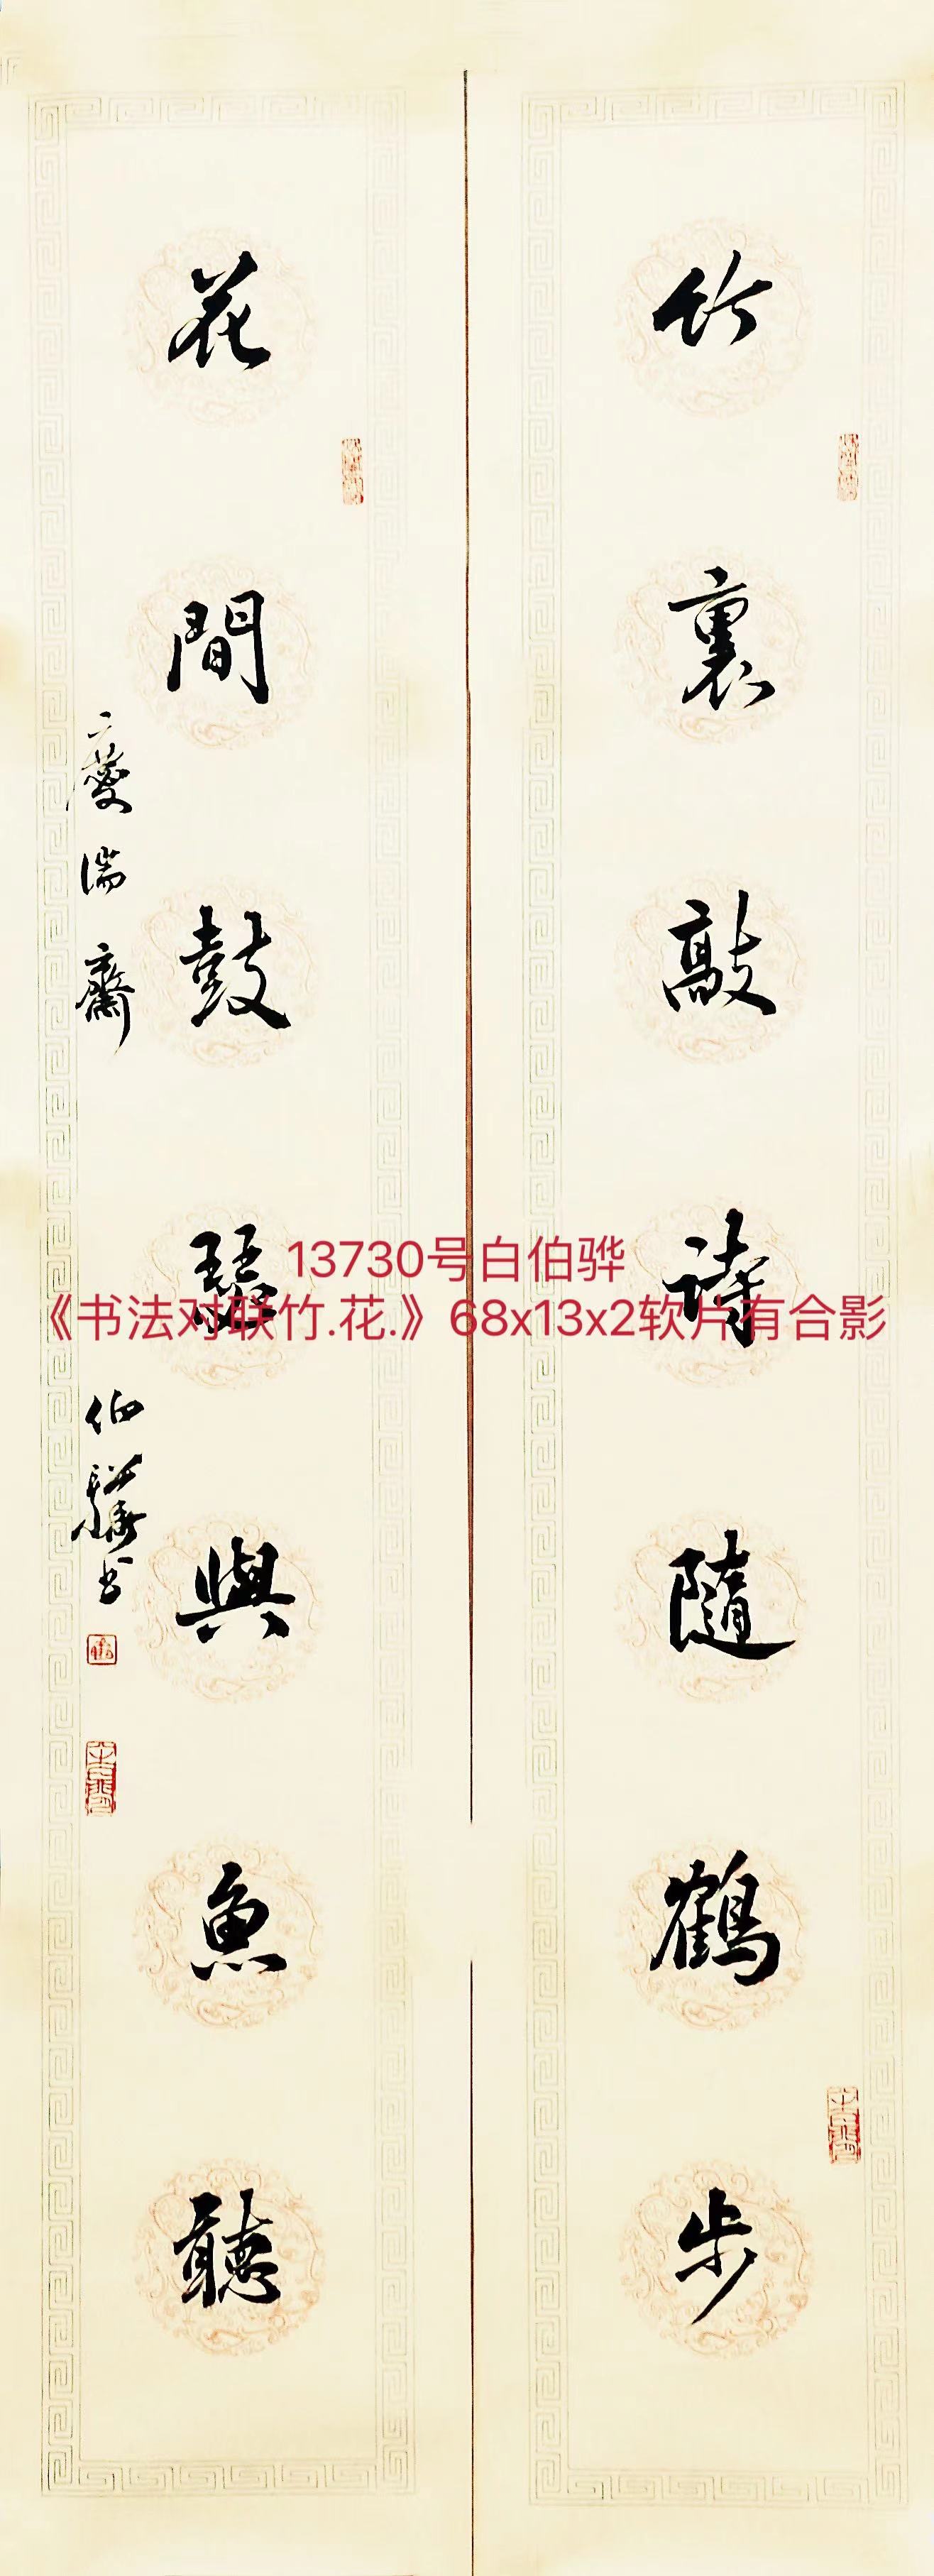 竹裏敲詩隨鶴步
花間鼓瑟與魚聽
齋
伯驊书
13730号白伯骅
《书法对联竹.花.》68x13x2软片有合影